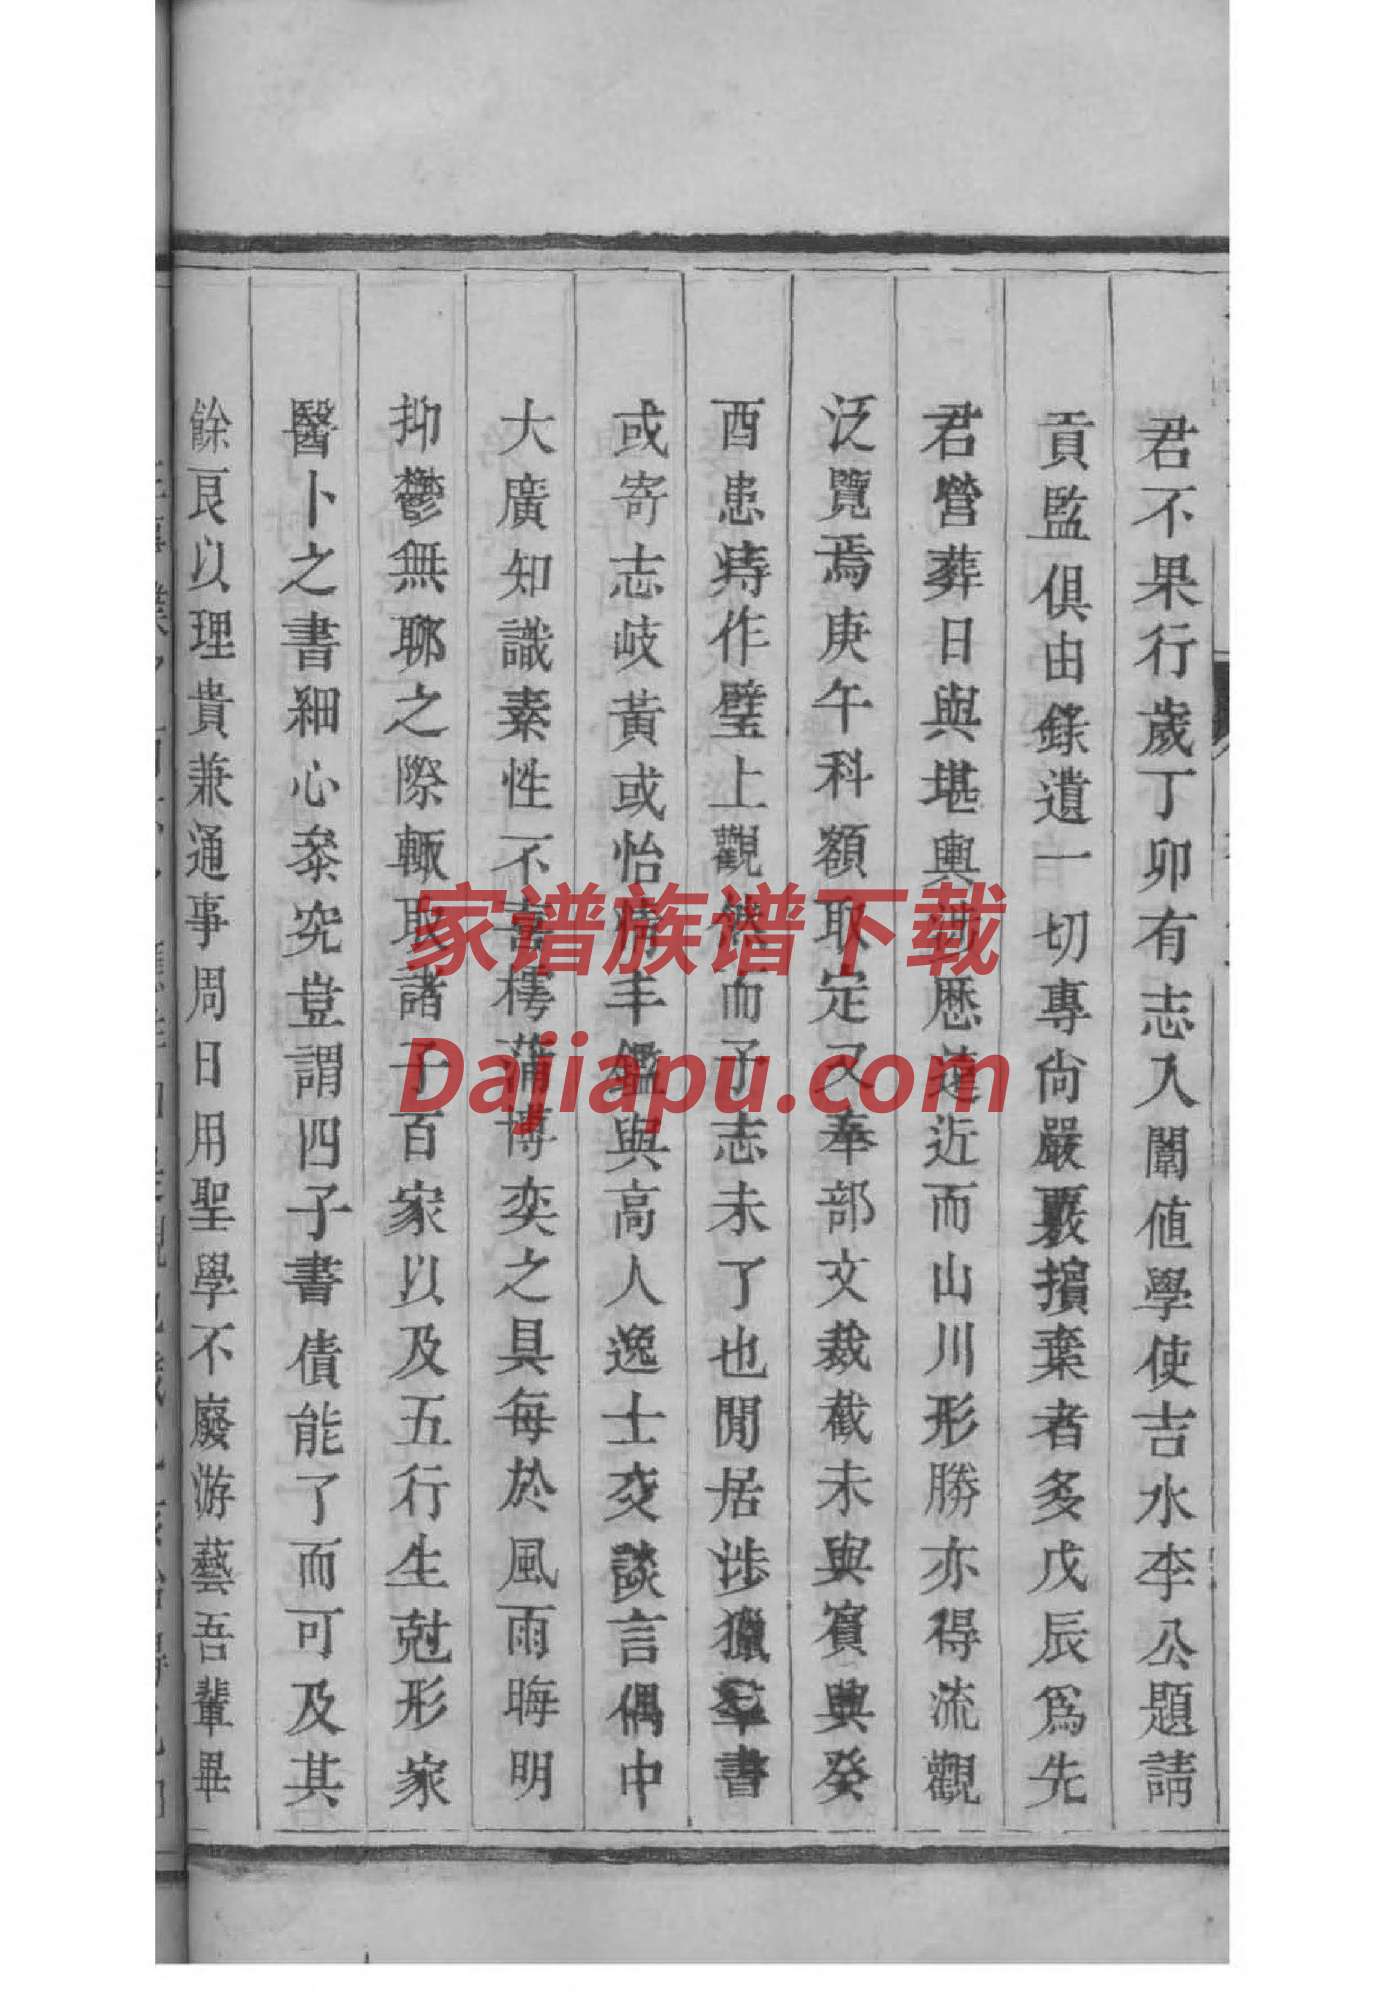 君不果行歲丁卯有志入闈値學使吉水李公題請
貢監俱由錄遺一切專尙嚴覈擯棄者多戊辰爲先
君營葬日與堪輿遊歷遠近而山川形勝亦得流觀
泛覽焉庚午科額取定又奉部文裁截未與賓興癸
酉患痔作壁上觀然而予志未了也閒居涉獵羣書
或寄志岐黃或怡情丰鑑與高人逸士交談言偶中
大廣知識素性不喜樗蒲博奕之具每於風雨晦明
抑鬱無聊之際輒取諸子百家以及五行生尅形家
醫卜之書細心叅究豈謂四子書債能了而可及其
餘良以理貴兼通事周日用聖學不廢游藝吾輩畢
家谱族谱下载
Dajiapu.com